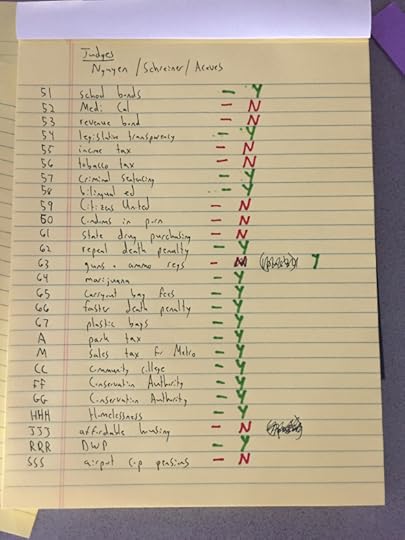 Judges
Nguyen / Schreiner / Aceves
51 school bonds - Y
52 Medi Cal - N
53 revenue bond - N
54 legislative transparency - Y
55 income tax - N
56 tobacco tax - N
57 criminal sentencing - Y
58 bilingual ed - Y
59 Citizens United - N
60 Condoms in porn - N
61 state drug purchasing - N
62 repeal death penalty - Y
63 guns + ammo regs - N Y
64 marijuana - Y
65 carryout bag fees - Y
66 faster death penalty - Y
67 plastic bags - Y
A park tax - Y
M sales tax for Metro - Y
CC Community college - Y
FF Conservation Authority - Y
GG Conservation Authority - Y
HHH Homelessness - Y
JJJ affordable housing - N
RRR DWP - Y
SSS airport cop pensions - N